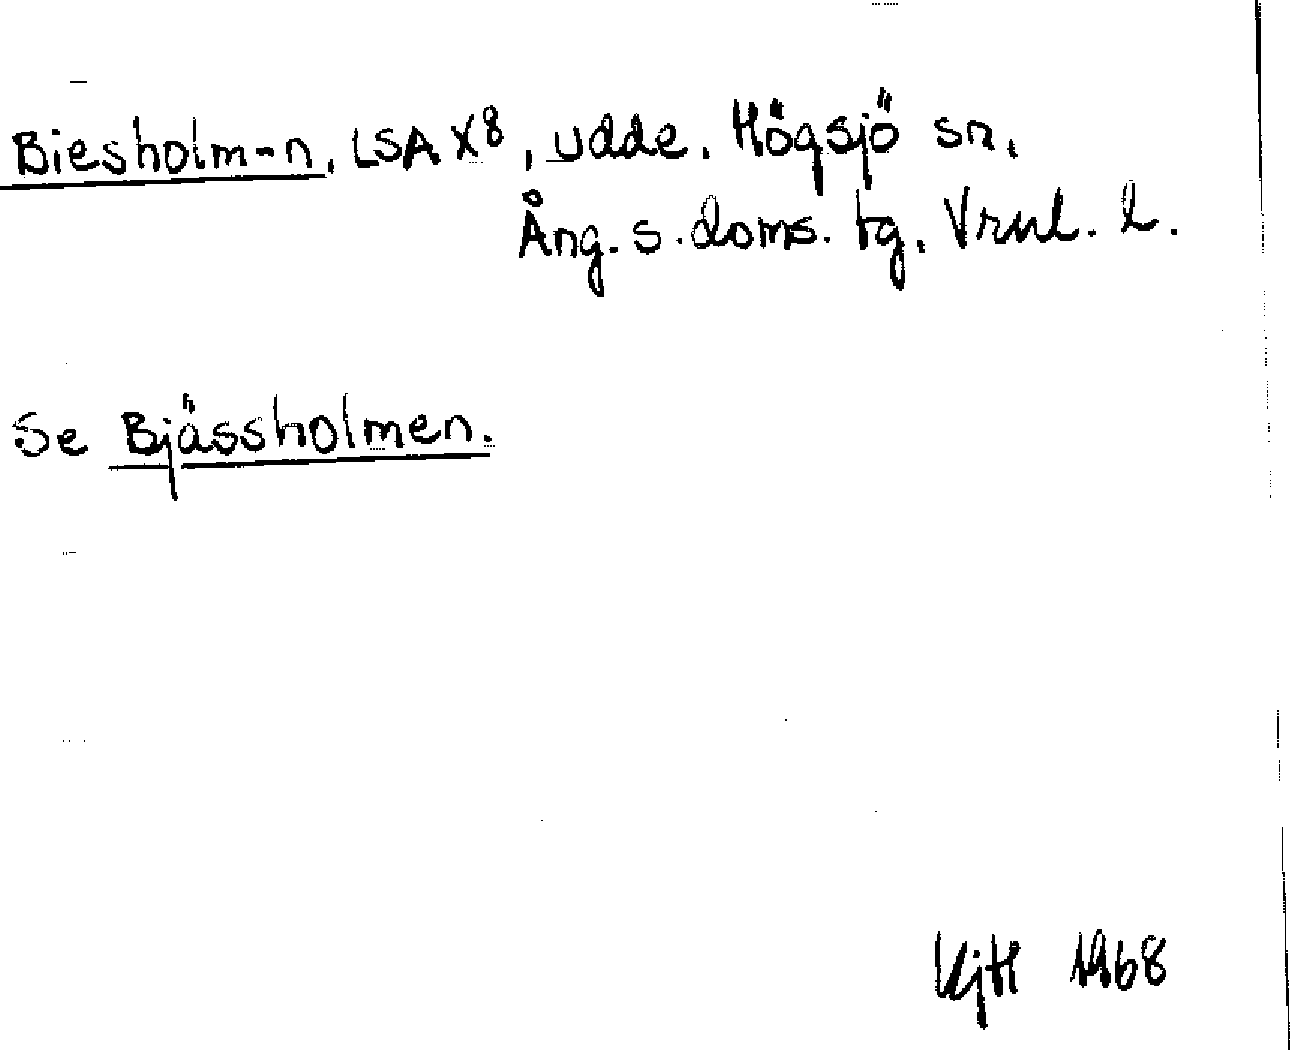 Biesholm-n, LSA X8, udde. Högsjö sn,
Ång. s. doms. tg. Vrnl. l.
Se Bjässholmen.
KjH 1968